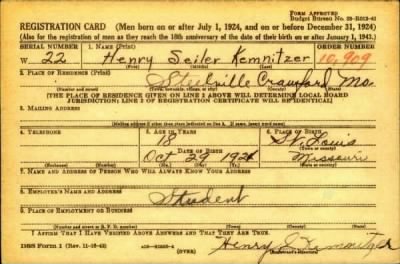 FORM APPROVED
REGISTRATION CARD (Men born on or after July 1, 1924, and on or before December 31, 1924)
(Also for the registration of men as they reach the 18th anniversary of the date of their birth on or after January 1, 1943.)
SERIAL NUMBER 1. NAME (Print) ORDER NUMBER
W 22 Henry Seiler Kemnitzer 10,909
(First) (Middle) (Last)
2. PLACE OF RESIDENCE (Print)
Steelville Crawford Mo.
[THE PLACE OF RESIDENCE GIVEN ON LINE 2 ABOVE WILL DETERMINE LOCAL BOARD
JURISDICTION; LINE 2 OF REGISTRATION CERTIFICATE WILL BE IDENTICAL]
3. MAILING ADDRESS
4. TELEPHONE 5. AGE IN YEARS 6. PLACE OF BIRTH
18 St. Louis
DATE OF BIRTH
Oct 29 1924 Missouri
(Exchange) (Number) (Mo.) (Day) (Yr.) (State or country)
7. NAME AND ADDRESS OF PERSON WHO WILL ALWAYS KNOW YOUR ADDRESS
8. EMPLOYER'S NAME AND ADDRESS
Student
9. PLACE OF EMPLOYMENT OR BUSINESS
I AFFIRM THAT I HAVE VERIFIED ABOVE ANSWERS AND THAT THEY ARE TRUE.
DSS Form 1 (Rev. 11-16-42) (OVER) Henry S. Kemnitzer